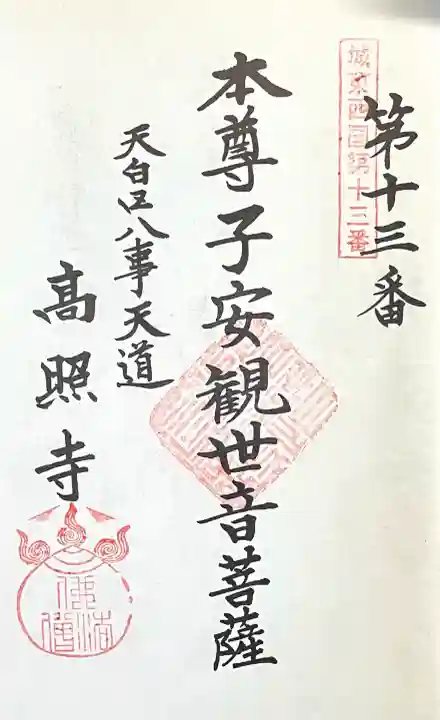 城東四国第十三番
第十三番
本尊子安観世音菩薩
天白区八事天道
高照寺
佛法僧